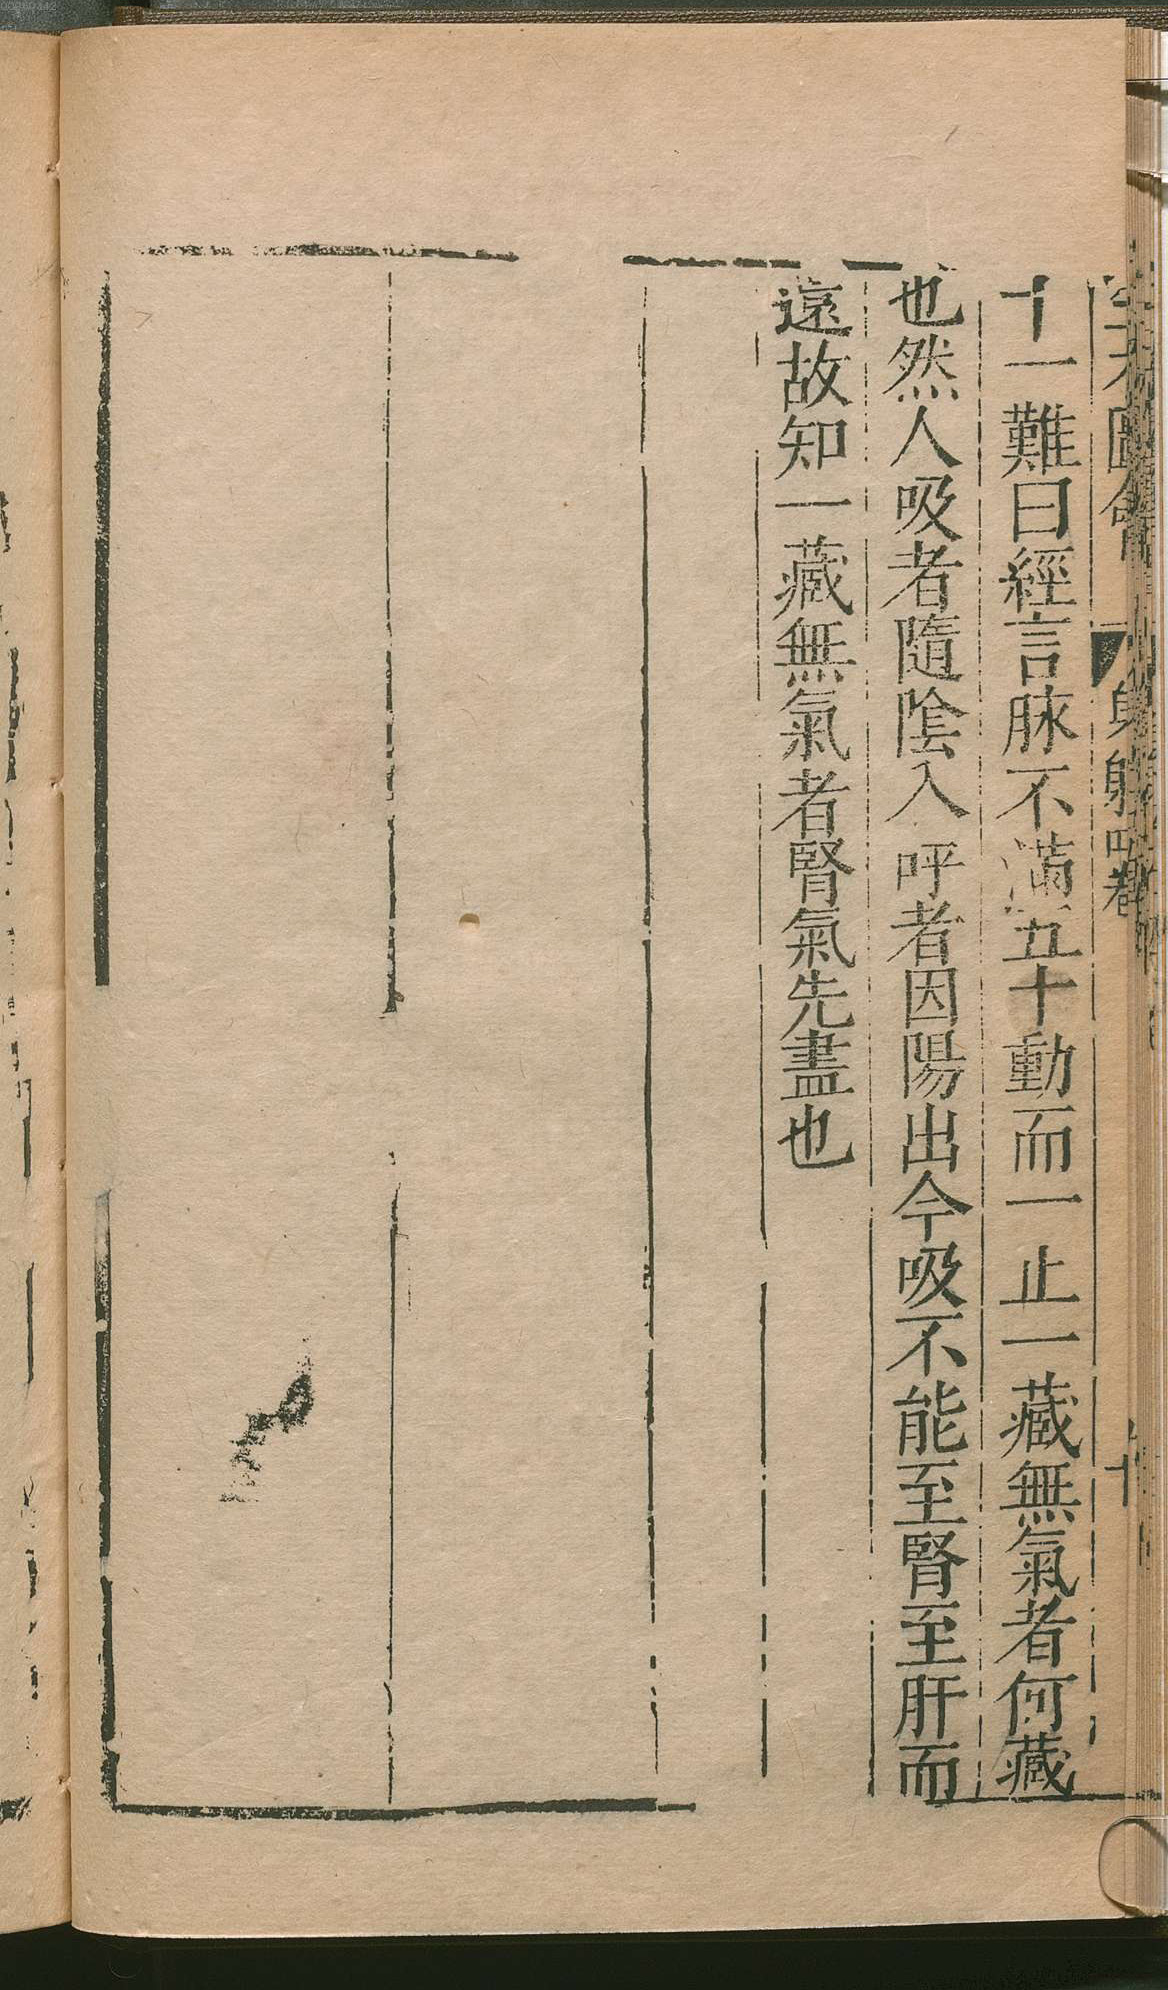 三才圖會 身體四卷
十一難曰經言脉不滿五十動而一止一藏無氣者何藏
也然人吸者隨陰入呼者因陽出今吸不能至腎至肝而
還故知一藏無氣者腎氣先盡也